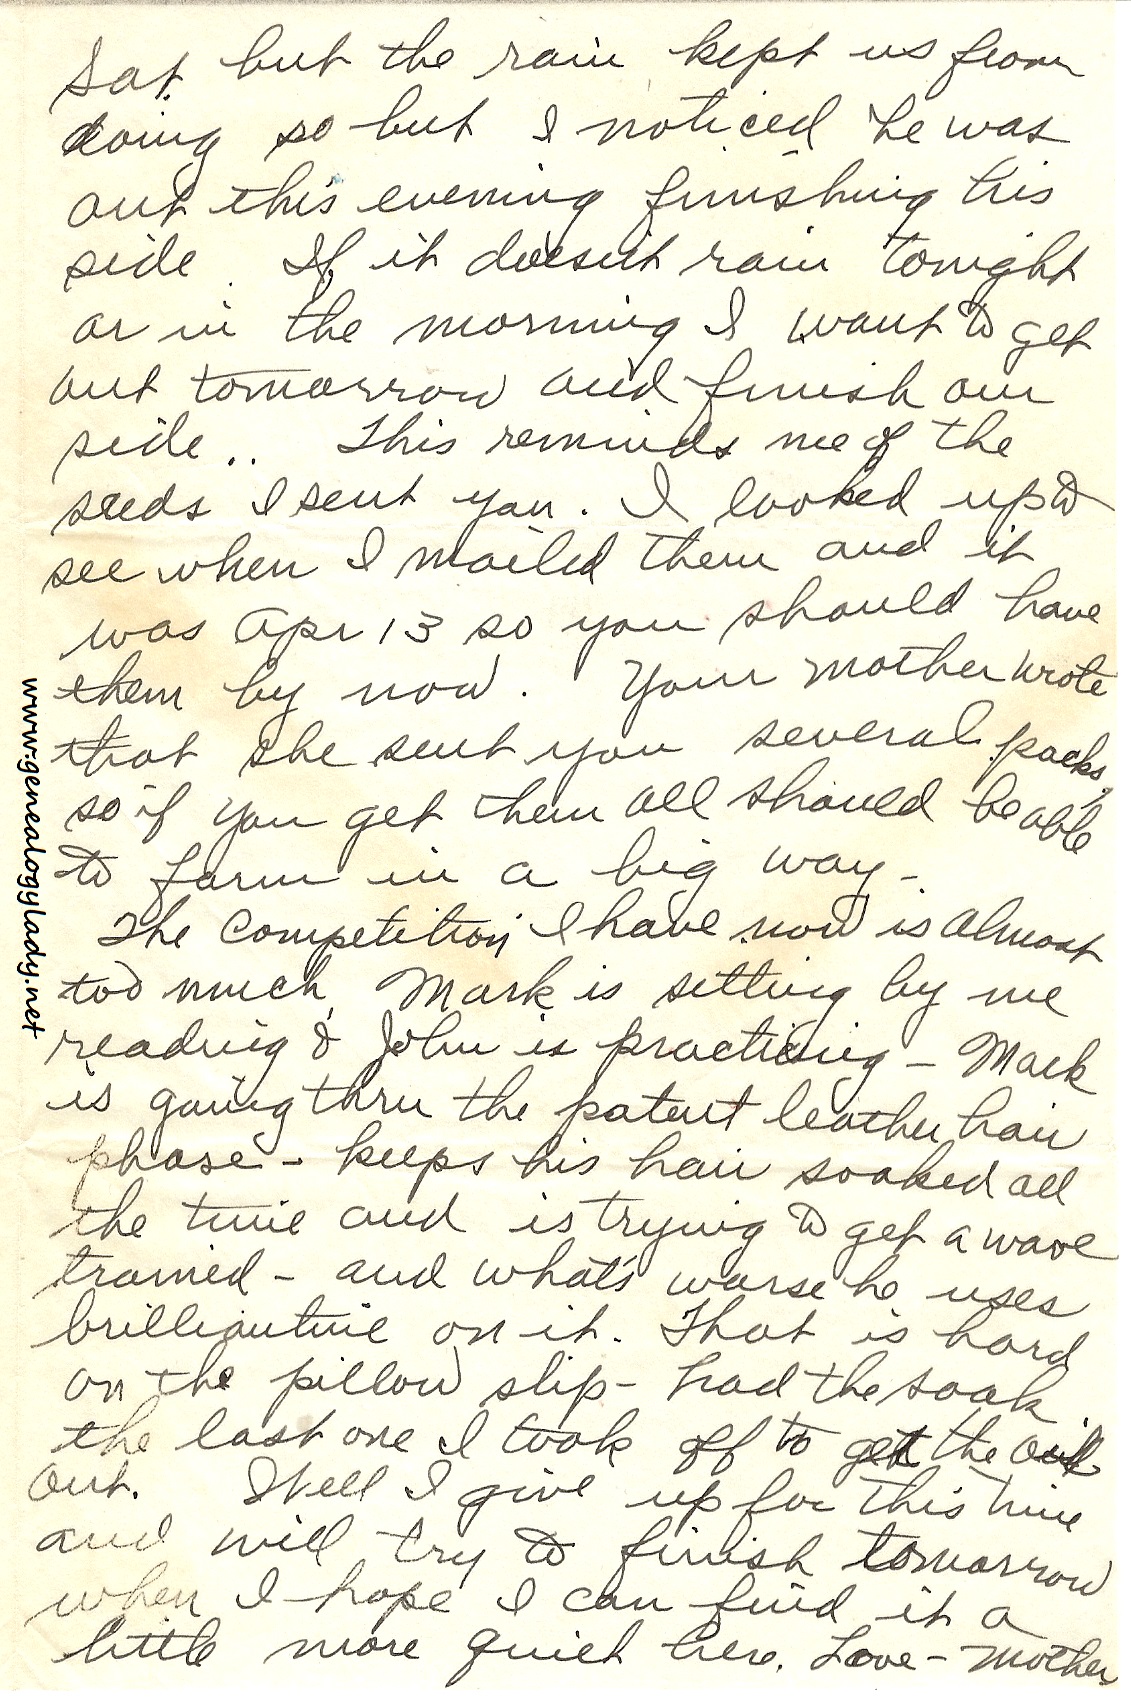 Sat. but the rain kept us from
doing so but I noticed he was
out this evening finishing his
side. If it doesn't rain tonight
or in the morning I want to get
out tomorrow and finish our
side.. This reminds me of the
seeds I sent you. I looked up to
see when I mailed them and it
was Apr 13 so you should have
them by now. Your mother wrote
that she sent you several packs,
so if you get them all should be able
to farm in a big way -
The competition I have now is almost
too much, Mark is setting by me
reading & John is practicing - Mark
is going thru the patent leather hair
phase - keeps his hair soaked all
the time and is trying to get a wave
trained - and what's worse he uses
brilliantine on it. That is hard
on the pillow slip - had the soak
the last one I took off to get the oil
out. Well I give up for this time
and will try to finish tomorrow
when I hope I can find it a
little more quiet here. Love - Mother
www.genealogylady.net